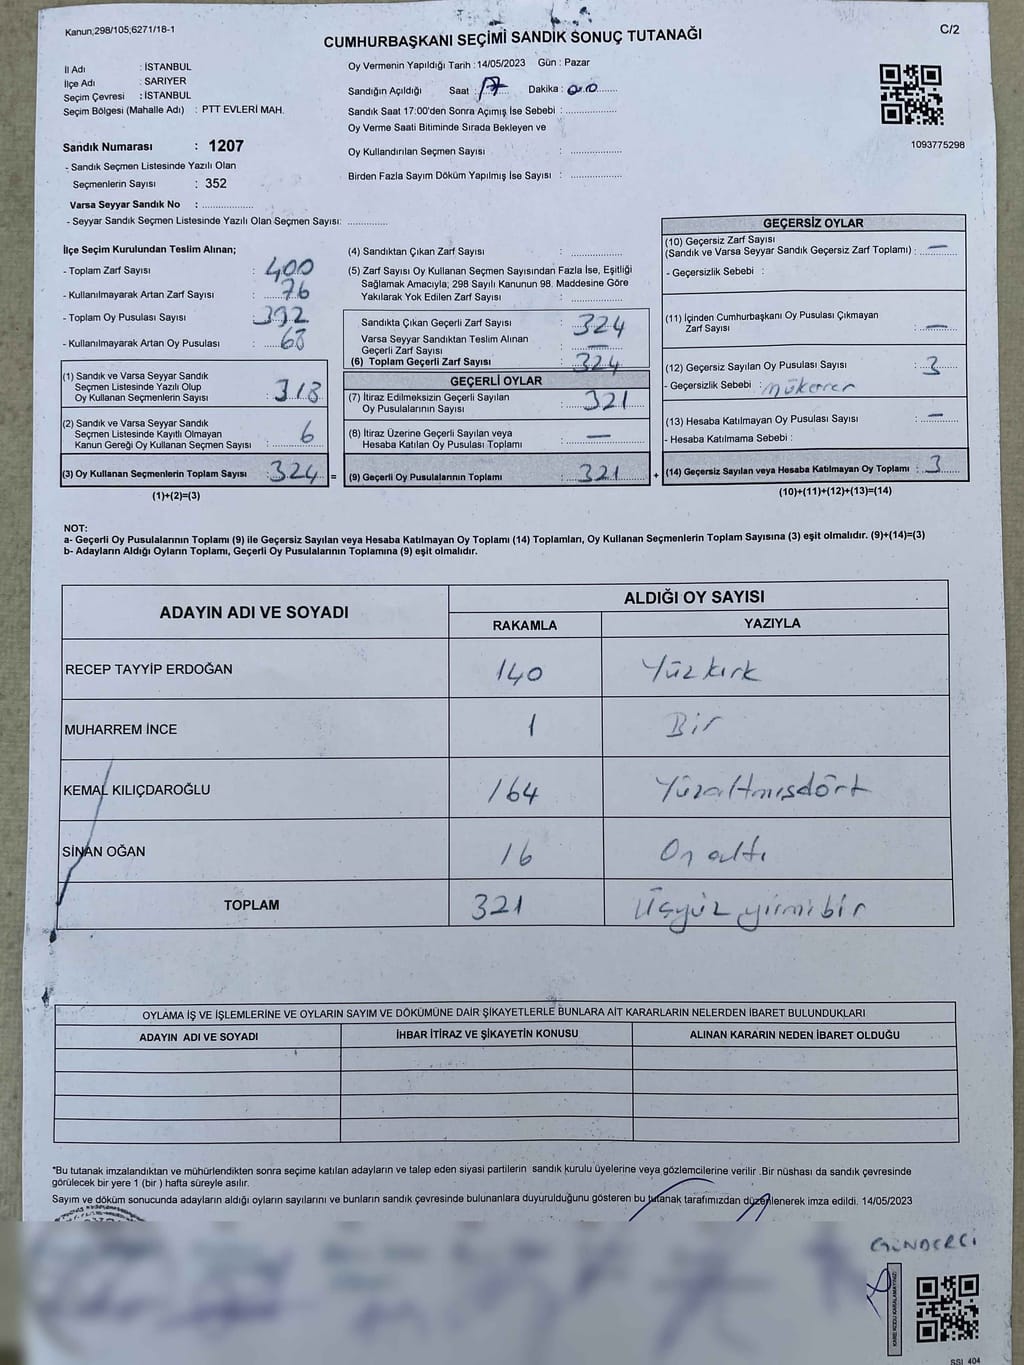 Kanun;298/105;6271/18-1
C/2
CUMHURBAŞKANI SEÇİMİ SANDIK SONUÇ TUTANAĞI
İl Adı : İSTANBUL
İlçe Adı : SARIYER
Seçim Çevresi : İSTANBUL
Seçim Bölgesi (Mahalle Adı) : PTT EVLERİ MAH.
Sandık Numarası : 1207
- Sandık Seçmen Listesinde Yazılı Olan
Seçmenlerin Sayısı : 352
Varsa Seyyar Sandık No : ..................
- Seyyar Sandık Seçmen Listesinde Yazılı Olan Seçmen Sayısı: ..............
Oy Vermenin Yapıldığı Tarih :14/05/2023 Gün : Pazar
Sandığın Açıldığı Saat : 17 Dakika : 00
Sandık Saat 17:00'den Sonra Açımış İse Sebebi : ..................
Oy Verme Saati Bitiminde Sırada Bekleyen ve
Oy Kullandırılan Seçmen Sayısı : ..................
Birden Fazla Sayım Döküm Yapılmış İse Sayısı : ..................
1093775298
İlçe Seçim Kurulundan Teslim Alınan;
- Toplam Zarf Sayısı : 400
- Kullanılmayarak Artan Zarf Sayısı : 76
- Toplam Oy Pusulası Sayısı : 392
- Kullanılmayarak Artan Oy Pusulası : 68
(1) Sandık ve Varsa Seyyar Sandık
Seçmen Listesinde Yazılı Olup
Oy Kullanan Seçmenlerin Sayısı : 318
(2) Sandık ve Varsa Seyyar Sandık
Seçmen Listesinde Kayıtlı Olmayan
Kanun Gereği Oy Kullanan Seçmen Sayısı : 6
(3) Oy Kullanan Seçmenlerin Toplam Sayısı : 324 =
(1)+(2)=(3)
(4) Sandıktan Çıkan Zarf Sayısı : ..................
(5) Zarf Sayısı Oy Kullanan Seçmen Sayısından Fazla İse, Eşitliği
Sağlamak Amacıyla; 298 Sayılı Kanunun 98. Maddesine Göre
Yakılarak Yok Edilen Zarf Sayısı : ..................
Sandıkta Çıkan Geçerli Zarf Sayısı : 324
Varsa Seyyar Sandıktan Teslim Alınan
Geçerli Zarf Sayısı : —
(6) Toplam Geçerli Zarf Sayısı : 324
GEÇERLİ OYLAR
(7) İtiraz Edilmeksizin Geçerli Sayılan
Oy Pusulalarının Sayısı : 321
(8) İtiraz Üzerine Geçerli Sayılan veya
Hesaba Katılan Oy Pusulası Toplamı : —
(9) Geçerli Oy Pusulalarının Toplamı : 321 +
GEÇERSİZ OYLAR
(10) Geçersiz Zarf Sayısı
(Sandık ve Varsa Seyyar Sandık Geçersiz Zarf Toplamı) : —
- Geçersizlik Sebebi :
(11) İçinden Cumhurbaşkanı Oy Pusulası Çıkmayan
Zarf Sayısı : —
(12) Geçersiz Sayılan Oy Pusulası Sayısı : 3
- Geçersizlik Sebebi : mükerrer
(13) Hesaba Katılmayan Oy Pusulası Sayısı : —
- Hesaba Katılmama Sebebi :
(14) Geçersiz Sayılan veya Hesaba Katılmayan Oy Toplamı : 3
(10)+(11)+(12)+(13)=(14)
NOT:
a- Geçerli Oy Pusulalarının Toplamı (9) ile Geçersiz Sayılan veya Hesaba Katılmayan Oy Toplamı (14) Toplamları, Oy Kullanan Seçmenlerin Toplam Sayısına (3) eşit olmalıdır. (9)+(14)=(3)
b- Adayların Aldığı Oyların Toplamı, Geçerli Oy Pusulalarının Toplamına (9) eşit olmalıdır.
ADAYIN ADI VE SOYADI
ALDIĞI OY SAYISI
RAKAMLA YAZIYLA
RECEP TAYYİP ERDOĞAN 140 Yüzkırk
MUHARREM İNCE 1 Bir
KEMAL KILIÇDAROĞLU 164 Yüzaltmışdört
SİNAN OĞAN 16 On altı
TOPLAM 321 Üçyüz yirmi bir
OYLAMA İŞ VE İŞLEMLERİNE VE OYLARIN SAYIM VE DÖKÜMÜNE DAİR ŞİKAYETLERLE BUNLARA AİT KARARLARIN NELERDEN İBARET BULUNDUKLARI
ADAYIN ADI VE SOYADI İHBAR İTİRAZ VE ŞİKAYETİN KONUSU ALINAN KARARIN NEDEN İBARET OLDUĞU
*Bu tutanak imzalandıktan ve mühürlendikten sonra seçime katılan adayların ve talep eden siyasi partilerin sandık kurulu üyelerine veya gözlemcilerine verilir .Bir nüshası da sandık çevresinde
görülecek bir yere 1 (bir ) hafta süreyle asılır.
Sayım ve döküm sonucunda adayların aldığı oyların sayılarını ve bunların sandık çevresinde bulunanlara duyurulduğunu gösteren bu tutanak tarafımızdan düzenlenerek imza edildi. 14/05/2023
GÜNDERCİ
KARE KODU KARALAMAYINIZ!
SSI_404